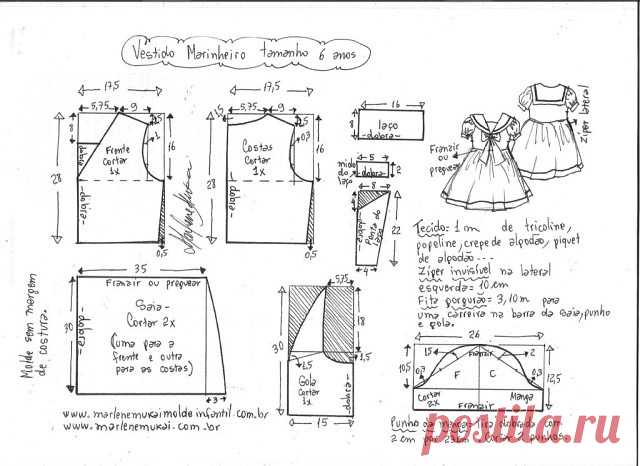 Vestido Marinheiro tamanho 6 anos
17,5
5,75 9
1,5
8
1
16
28
dobra
Frente
Cortar
1x
dobra
0,5
17,5
5,75 9
1,5
0,3
16
28
Costas
Cortar
1x
dobra
0,5
16
8
laço
dobra
5
miolo
do
laço
dobra
2
8
dobra
Ponta do
laço
22
4
Franzir
ou
preguear
Zíper lateral
Tecido: 1 m de tricoline,
popeline, crepe de algodão, piquet
de algodão...
Zíper invisível na lateral
esquerda = 10 cm
Fita gorgurão = 3,10 m para
uma carreira na barra da saia, punho
e gola.
35
Franzir ou preguear
30
dobra
Saia-
Cortar 2x
(uma para a
frente e outra
para as costas)
3
Molde sem margem
de costura.
5,75
18
30
1,5
1,5
Gola
Cortar
1x
dobra
15
26
10,5
1,5
Franzir
2
0,3
F C
0,3
12,5
Cortar
2x
Manga
Franzir
Punho da manga: tira dobrada com
2 cm por 23 cm cortar 2 punhos.
www.marlenemukaimoldeinfantil.com.br
www.marlenemukai.com.br
postila.ru